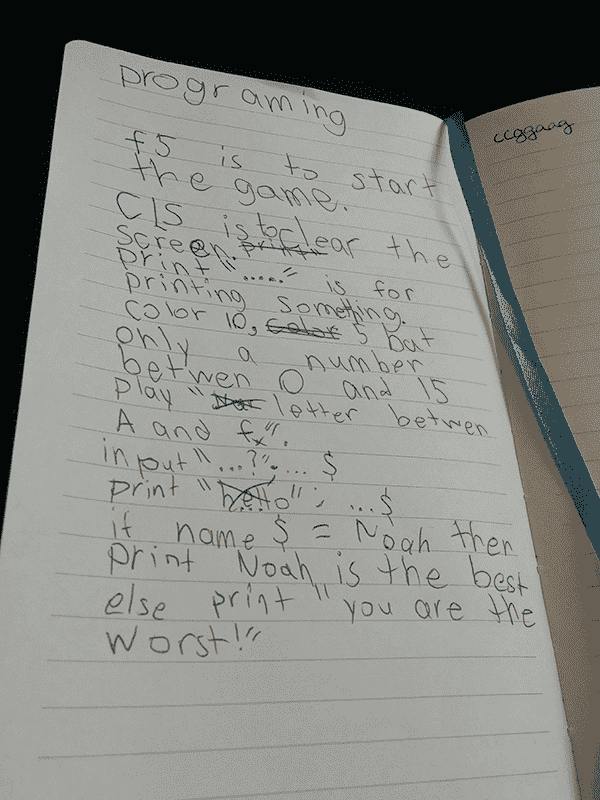 programing
f5 is to start
the game.
CLS is to clear the
screen. print"
print "....." is for
printing something.
color 10, color 5 bat
only a number
betwen 0 and 15
play " letter betwen
A and fx".
input "...?"....$
print "hello"; ...$
if name$ = Noah then
print Noah is the best
else print "you are the
worst!"
ccggaag